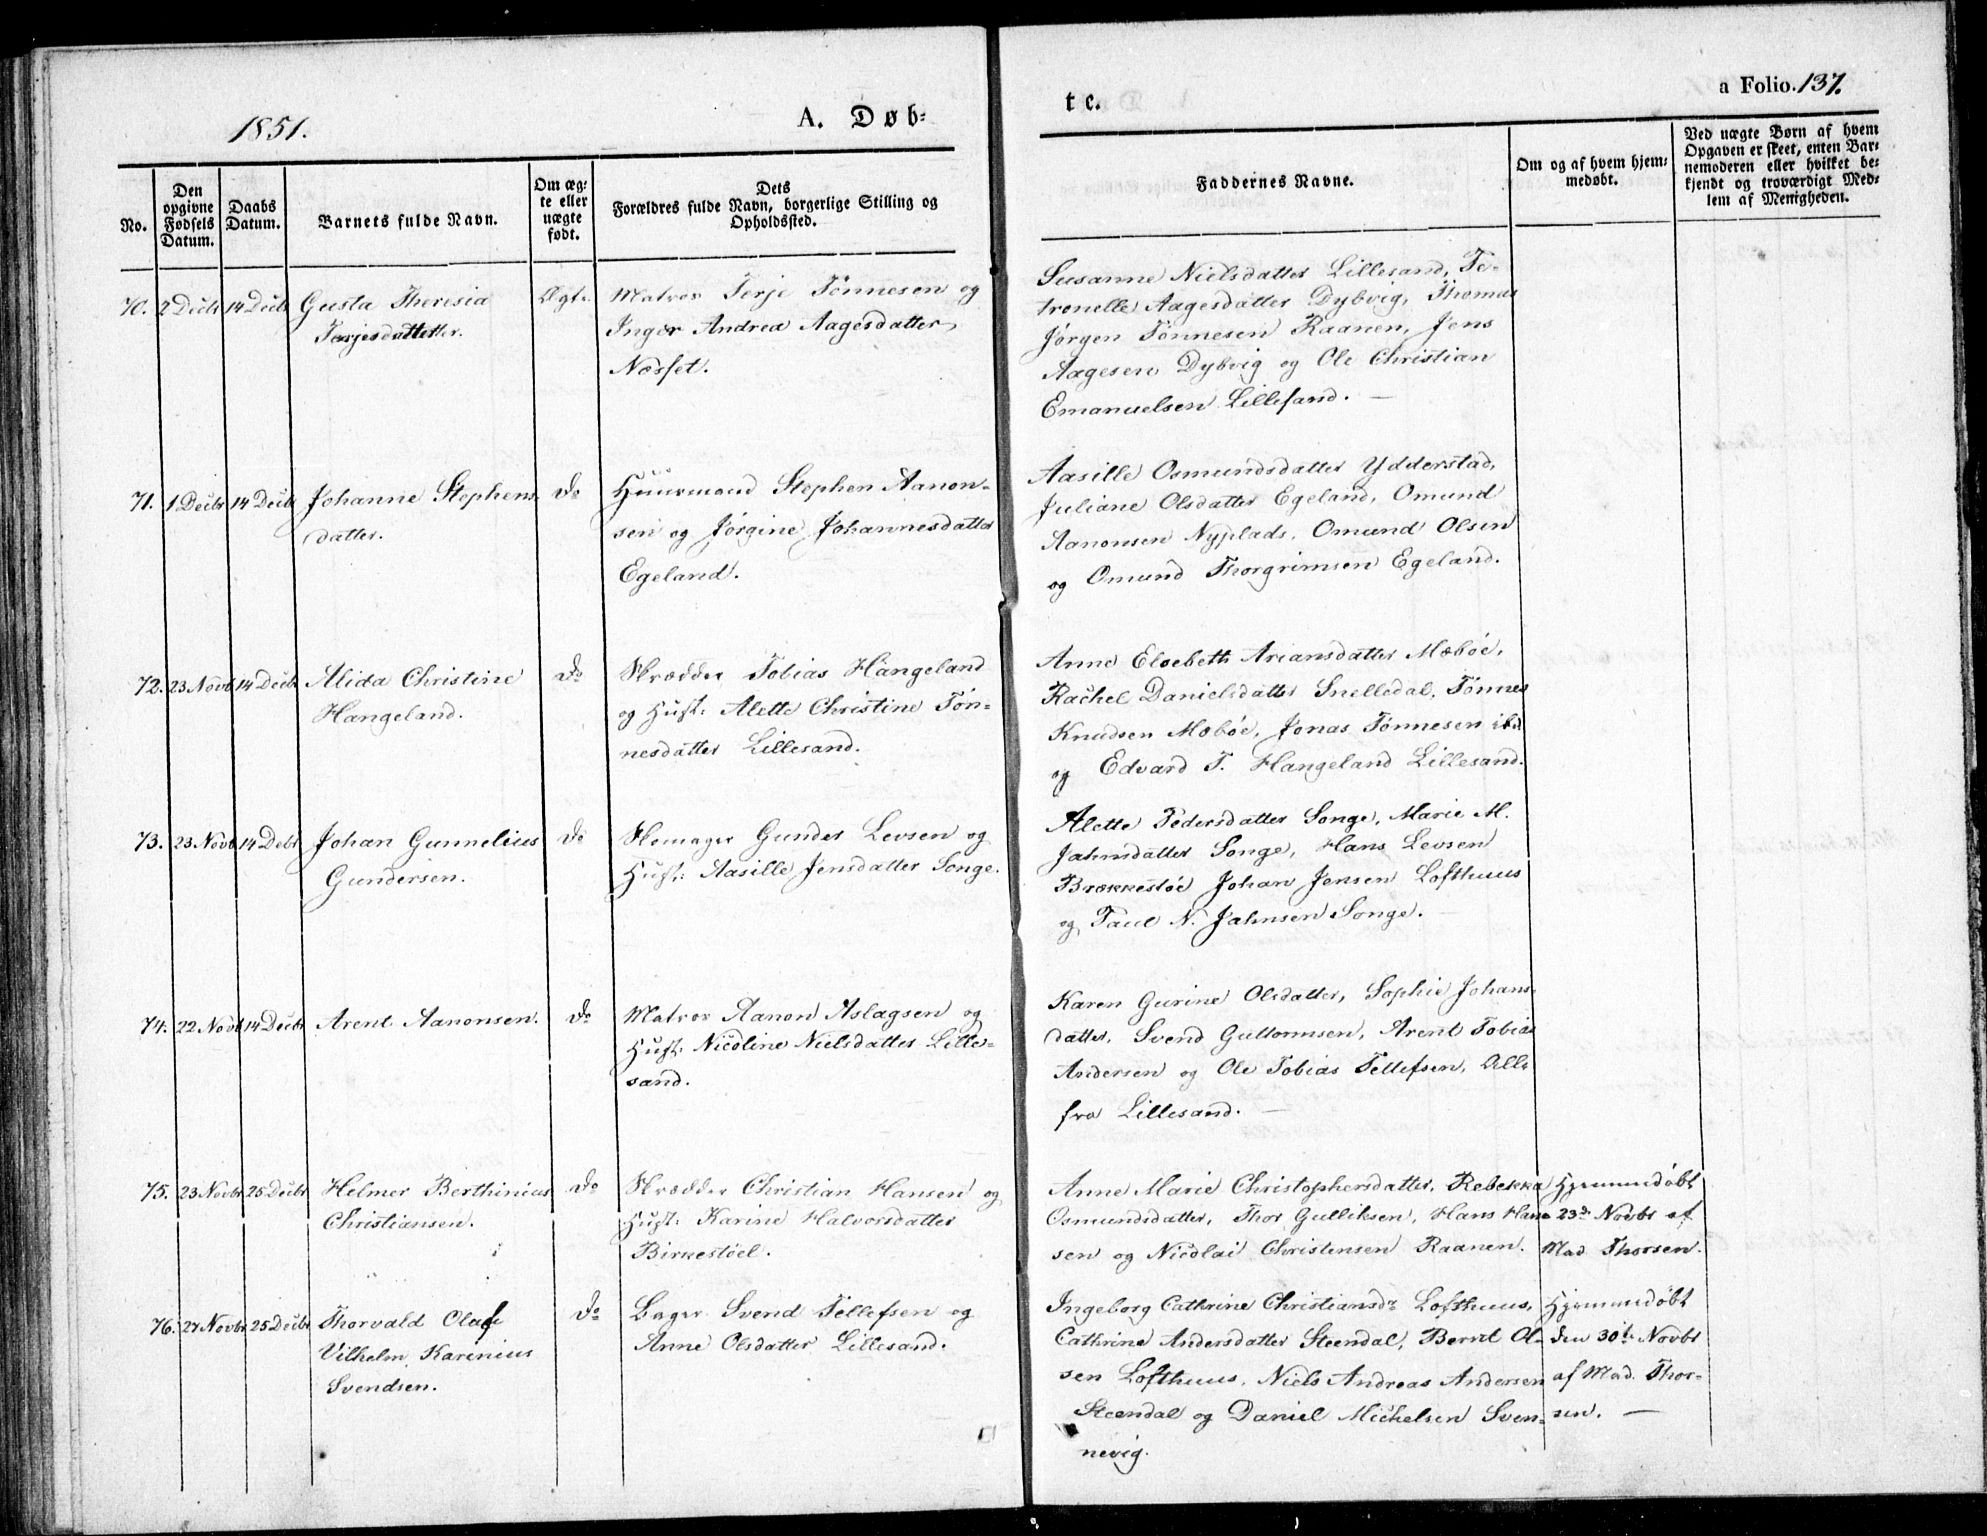 1851.
A. Døb-
te.
a Folio. 137.
No.
Den
opgivne
Fødsels
Datum.
Daabs
Datum.
Barnets fulde Navn.
Om æg-
te eller
uægte
født.
Dets
Forældres fulde Navn, borgerlige Stilling og
Opholdssted.
Faddernes Navne.
Om og af hvem hjem-
medøbt.
Ved uægte Børn af hvem
Opgaven er skeet, enten Bar-
nemoderen eller hvilket be-
kjendt og troværdigt Med-
lem af Menigheden.
70. 2 Decbr 14 Decbr Gusta Theresia
Terjesdatter.
Ægte
Matros Terje Tønnesen og
Inger Andrea Aagesdatter,
Næsset.
Susanne Nielsdatter Lillesand, Pe-
tronelle Aagesdatter Dybvig, Thomas
Jørgen Tønnesen Raanen, Jens
Aagesen Dybvig og Ole Christian
Emanuelsen Lillesand. —
71. 1 Decbr 14 Decbr Johanne Stephens
datter.
Do
Huusmand Stephen Aanon-
sen og Jørgine Johannesdatter
Egeland.
Aasille Osmundsdatter Ydderstad,
Juliane Olsdatter Egeland, Omund
Aanonsen Nyplads, Omund Olsen
og Omund Thorgrimsen Egeland.
72. 23 Novb 14 Decbr Alida Christine
Hangeland.
Do
Skrædder Tobias Hangeland
og Hust: Alette Christine Tøn-
nesdatter Lillesand.
Anne Elsebeth Ariansdatter Mæbøe,
Rachel Danielsdatter Snelledal, Tønnes
Knudsen Mæbøe, Jonas Tønnesen ibd
og Edvard T. Hangeland Lillesand.
73. 23 Novb 14 Debr Johan Gunnelius
Gundersen.
Do
Skomager Gunder Levsen og
Hust: Aasille Jensdatter Songe.
Alette Pedersdatter Songe, Marie M.
Jahnsdatter Songe, Hans Levsen
Brækkestøe Johan Jensen Lofthuus
og Paul N. Jahnsen Songe.
74. 22 Novb 14 Decbr Arent Aanonsen.
Do
Matros Aanon Aslagsen og
Hust: Nicoline Nielsdatter Lille-
sand.
Karen Gurine Olsdatter, Sophie Johans-
datter, Svend Guttormsen, Arent Tobias
Andersen og Ole Tobias Tellefsen, Alle
fra Lillesand. —
75. 23 Novbr 25 Decbr Helmer Berthinius
Christiansen.
Do
Skrædder Christian Hansen og
Hust: Karine Halvorsdatter
Birkestøel.
Anne Marie Christophersdatter, Rebekka
Osmundsdatter, Thor Gulliksen, Hans Han-
sen og Nicolai Christensen Raanen.
Hjemmedøbt
23de Novbr af
Mad. Thorsen.
76. 27 Novbr 25 Decbr Thorvald Olaf
Vilhelm Karinius
Svendsen.
Do
Bager Svend Tellefsen og
Anne Olsdatter Lillesand.
Ingeborg Cathrine Christiansdr Lofthuus,
Cathrine Andersdatter Steendal, Bernt Ol-
sen Lofthuus, Niels Andreas Andersen
Steendal og Daniel Michelsen Sven-
nevig.
Hjemmedøbt
den 30te Novbr
af Mad. Thor-
sen. —